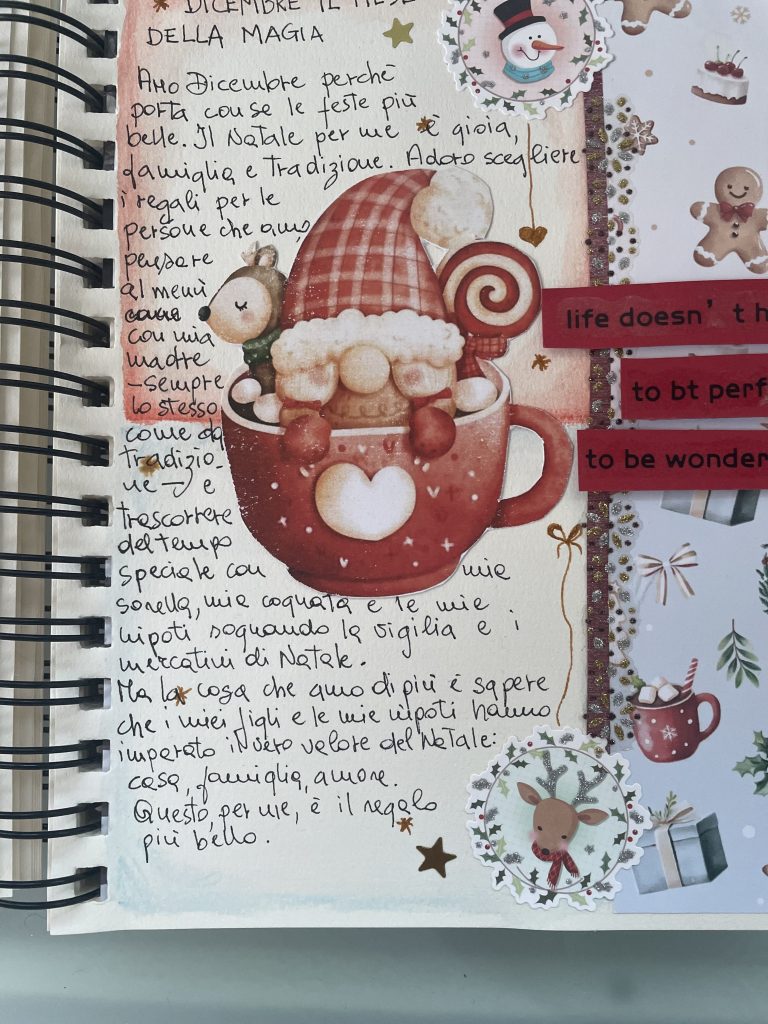 DICEMBRE IL MESE
DELLA MAGIA
Amo Dicembre perchè
porta con se le feste più
belle. Il Natale per me è gioia,
famiglia e tradizione. Adoro scegliere
i regali per le
persone che amo,
pensare
al menù
con mia
madre
-sempre
lo stesso
come da
tradizio-
ne- e
trascorrere
del tempo
speciale con mia
sorella, mia cognata e le mie
nipoti sognando la vigilia e i
mercatini di Natale.
Ma la cosa che amo di più è sapere
che i miei figli e le mie nipoti hanno
imparato il vero valore del Natale:
casa, famiglia, amore.
Questo, per me, è il regalo
più bello.
life doesn't h
to bt perf
to be wonder